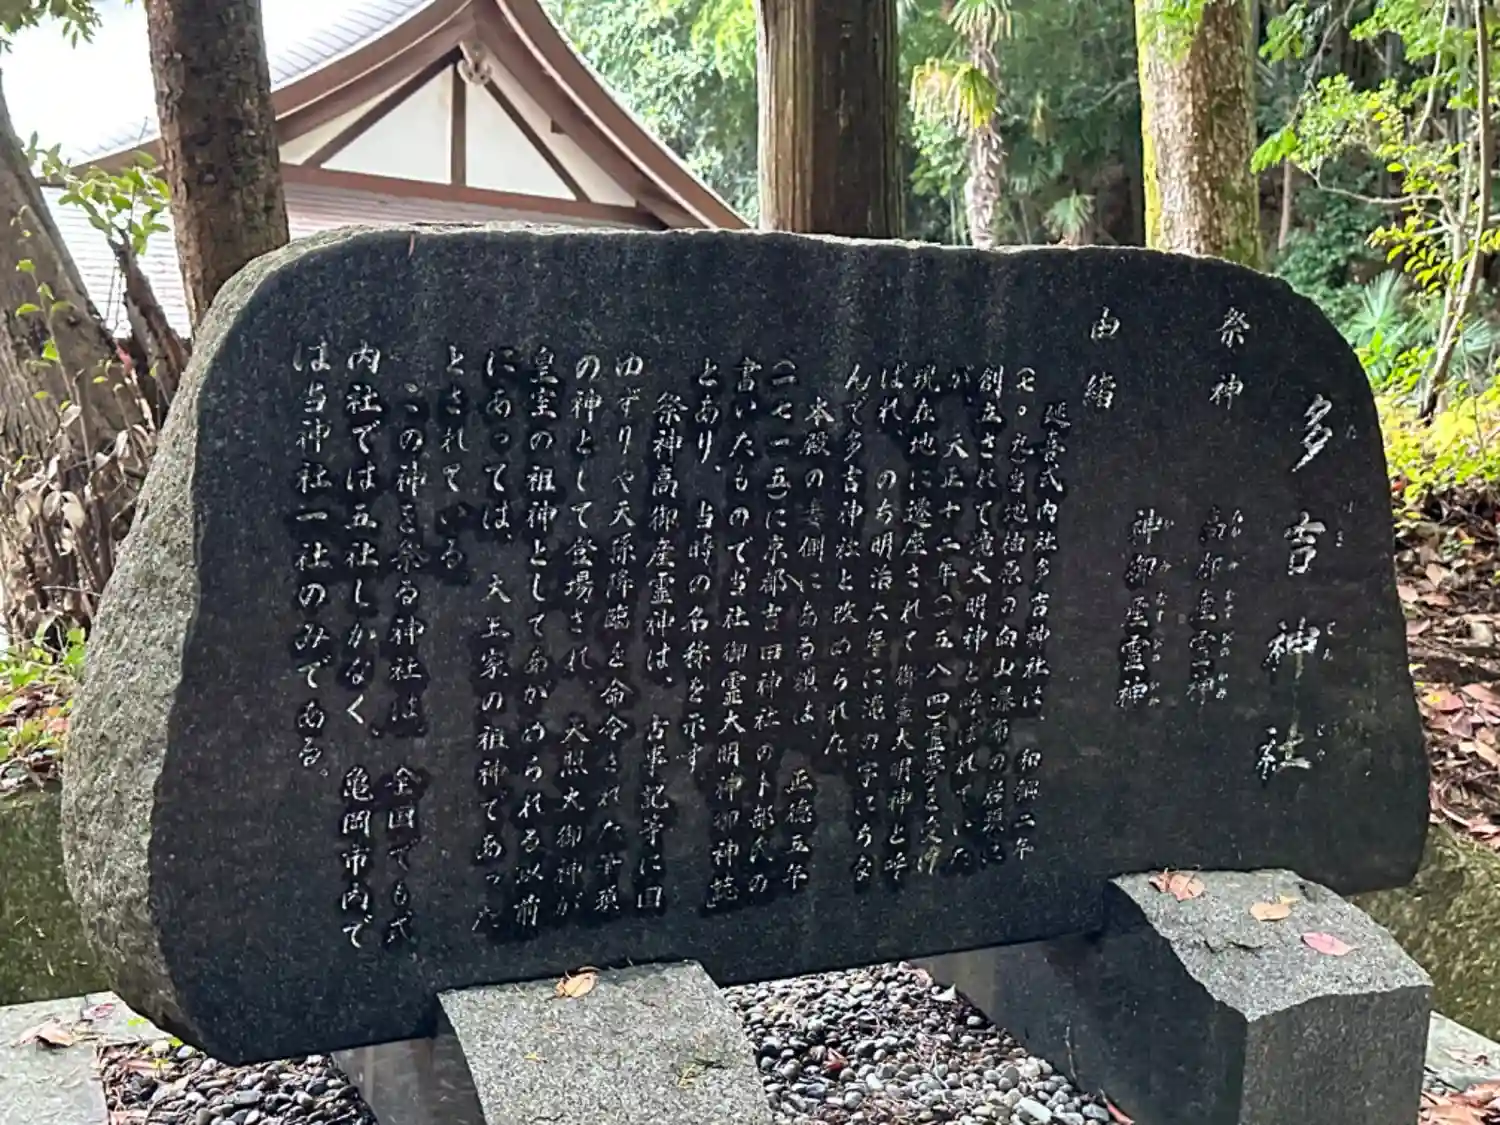 多吉神社
たきじんじゃ
祭神
高御産霊神
たかみむすびのかみ
神御霊神
かみみむすびのかみ
由緒
延喜式内社多吉神社は、和銅二年
(七〇九)当地柏原の向山瀑布の岩頭に
創立されて滝大明神と呼ばれていた
が、天正十二年(一五八四)霊夢を受け
現在地に遷座されて御霊大明神と呼
ばれ、のち明治六年に滝の字にちな
んで多吉神社と改められた
本殿の妻側にある額は、正徳五年
(一七一五)に京都吉田神社の卜部氏の
書いたもので当社御霊大明神御神號
とあり、当時の名称を示す
祭神高御産霊神は、古事記等に国
ゆずりや天孫降臨を命令された筆頭
の神として登場され、天照大御神が
皇室の祖神としてあがめられる以前
にあっては、天王家の祖神であった
とされている
この神を祭る神社は、全国でも式
内社では五社しかなく、亀岡市内で
は当神社一社のみである。